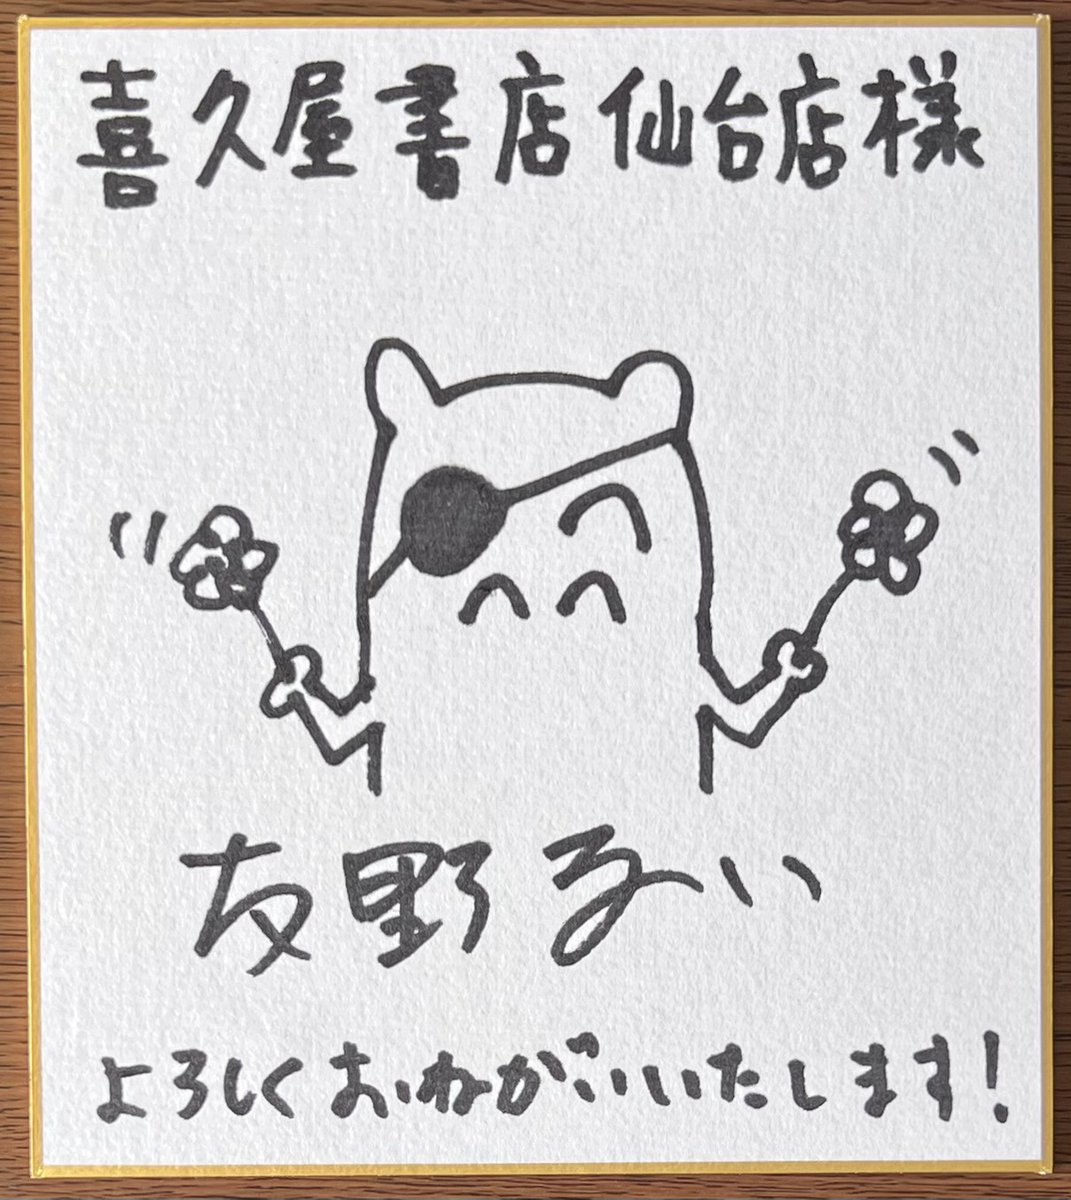 喜久屋書店仙台店様
友野るい
よろしくおねがいいたします!